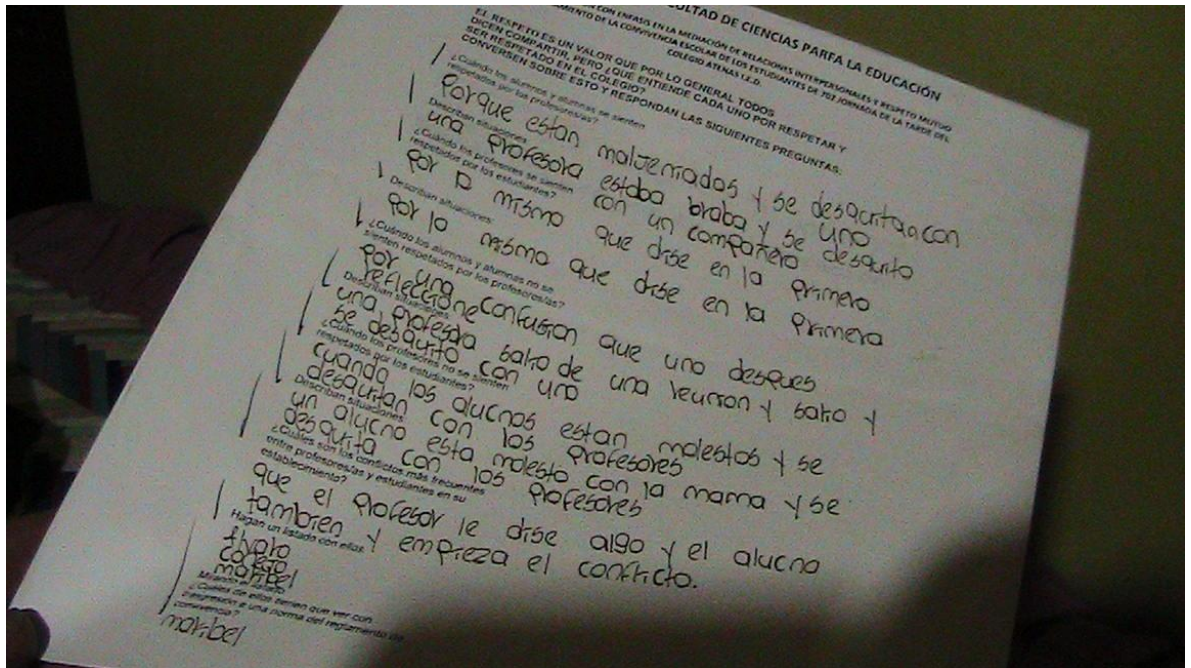 ULTAD DE CIENCIAS PARFA LA EDUCACIÓN
CON ENFASIS EN LA MEDIACIÓN DE RELACIONES INTERPERSONALES Y RESPETO MUTUO
MIENTO DE LA CONVIVENCIA ESCOLAR DE LOS ESTUDIANTES DE 702 JORNADA DE LA TARDE DEL
COLEGIO ATENAS I.E.D.
EL RESPETO ES UN VALOR QUE POR LO GENERAL TODOS
DICEN COMPARTIR, PERO ¿QUE ENTIENDE CADA UNO POR RESPETAR Y
SER RESPETADO EN EL COLEGIO?
CONVERSEN SOBRE ESTO Y RESPONDAN LAS SIGUIENTES PREGUNTAS:
¿Cuándo los alumnos y alumnas se sienten
respetados por los profesores/as?
Porque estan malJeniados y se desquitan con
uno
Describan situaciones
una profesora estaba braba y se desquito
con un compañero
¿Cuándo los profesores se sienten
respetados por los estudiantes?
Por lo mismo que dise en la primera
Describan situaciones:
Por lo mismo que dise en la primera
¿Cuándo los alumnos y alumnas no se
sienten respetados por los profesores/as?
Por una confusion que uno despues
refleccione
Describan situaciones
una profesora salio de una reunion y salio y
se desquito con uno
¿Cuándo los profesores no se sienten
respetados por los estudiantes?
cuando los alucnos estan molestos y se
desquitan con los profesores
Describan situaciones
un alucno esta molesto con la mama y se
desquita con los profesores
¿Cuáles son los conflictos más frecuentes
entre profesores/as y estudiantes en su
establecimiento?
que el profesor le dise algo y el alucno
tambien y empieza el conflicto.
Hagan un listado con ellos
maribel
Mirando el listado
¿Cuáles de ellos tienen que ver con
trasgresión a una norma del reglamento de
convivencia?
maribel